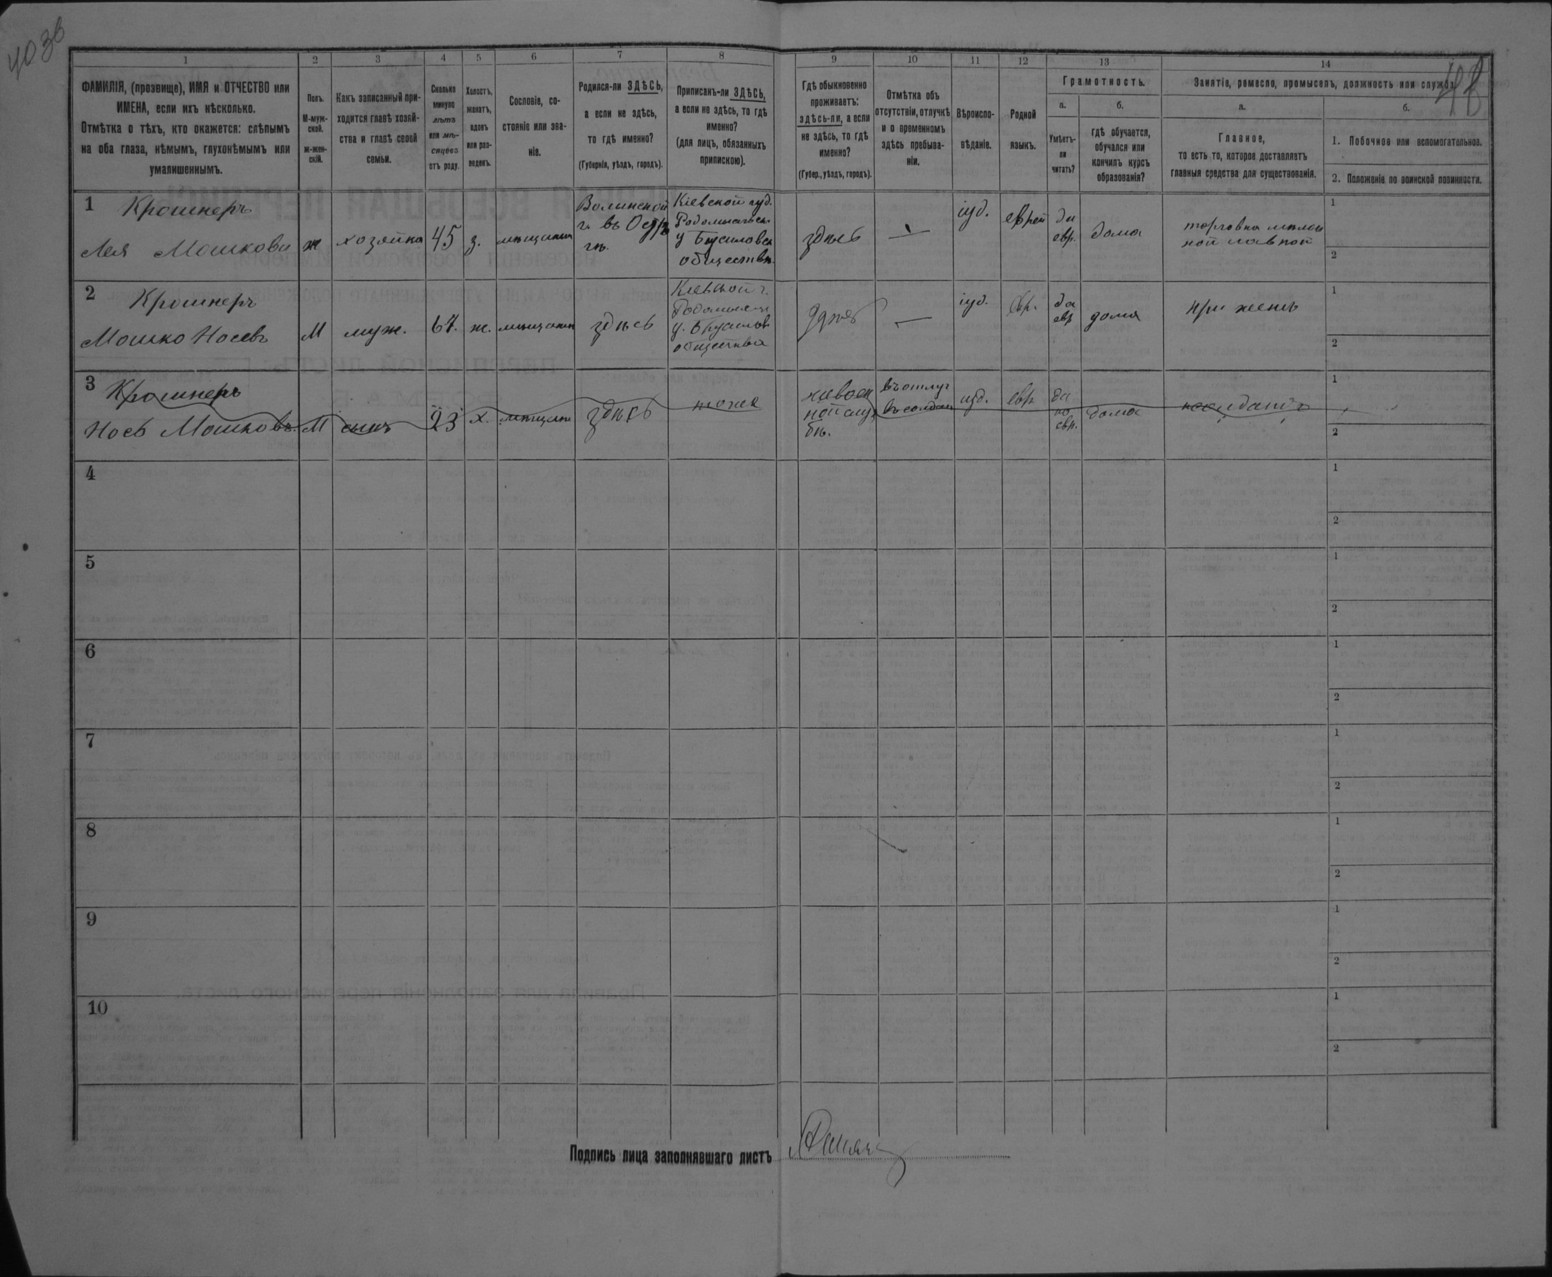 403б
48
1 2 3 4 5 6 7 8 9 10 11 12 13 14
ФАМИЛІЯ, (прозвище), ИМЯ и ОТЧЕСТВО или
ИМЕНА, если ихъ нѣсколько.
Отмѣтка о тѣхъ, кто окажется: слѣпымъ
на оба глаза, нѣмымъ, глухонѣмымъ или
умалишеннымъ.
Полъ.
М-муж-
ской.
ж-жен-
скій.
Какъ записанный при-
ходится главѣ хозяй-
ства и главѣ своей
семьи.
Сколько
минуло
лѣтъ
или мѣ-
сяцевъ
отъ роду.
Холостъ,
женатъ,
вдовъ
или раз-
веденъ.
Сословіе, со-
стояніе или зва-
ніе.
Родился-ли ЗДѢСЬ,
а если не здѣсь,
то гдѣ именно?
(Губернія, уѣздъ, городъ).
Приписанъ-ли ЗДѢСЬ,
а если не здѣсь, то гдѣ
именно?
(для лицъ, обязанныхъ
припискою).
Гдѣ обыкновенно
проживаетъ:
здѣсь-ли, а если
не здѣсь, то гдѣ
именно?
(Губер., уѣздъ, городъ).
Отмѣтка объ
отсутствіи, отлучкѣ
и о временномъ
здѣсь пребыва-
ніи.
Вѣроиспо-
вѣданіе.
Родной
языкъ.
Грамотность.
а.
Умѣетъ-
ли
читать?
б.
гдѣ обучается,
обучался или
кончилъ курсъ
образованія?
Занятіе, ремесло, промыселъ, должность или служба.
а.
Главное,
то есть то, которое доставляетъ
главныя средства для существованія.
б.
1. Побочное или вспомогательное.
2. Положеніе по воинской повинности.
1
Крошнеръ
Лея Мошкови
ж
хозяйка
45
з.
мѣщанка
Волинской
г.
Кіевской губ.
Радомысльск
у Брусиловск
обществѣ
здѣсь
—
іуд.
еврей
да
евр.
дома
1
2
2
Крошнеръ
Мошко Іосевъ
М
муж.
67.
ж.
мѣщанин
здѣсь
Кіевской г.
у. Брусилов
общества
здѣсь
—
іуд.
евр.
да
евр
дома
при женѣ
1
2
3
Крошнеръ
Іось Мошковъ
М
сынъ
23
х.
мѣщани
здѣсь
тоже
бѣ.
въ отлуч
іуд.
евр
да
по
евр.
дома
1
2
4
1
2
5
1
2
6
1
2
7
1
2
8
1
2
9
1
2
10
1
2
Подпись лица заполнявшаго листъ